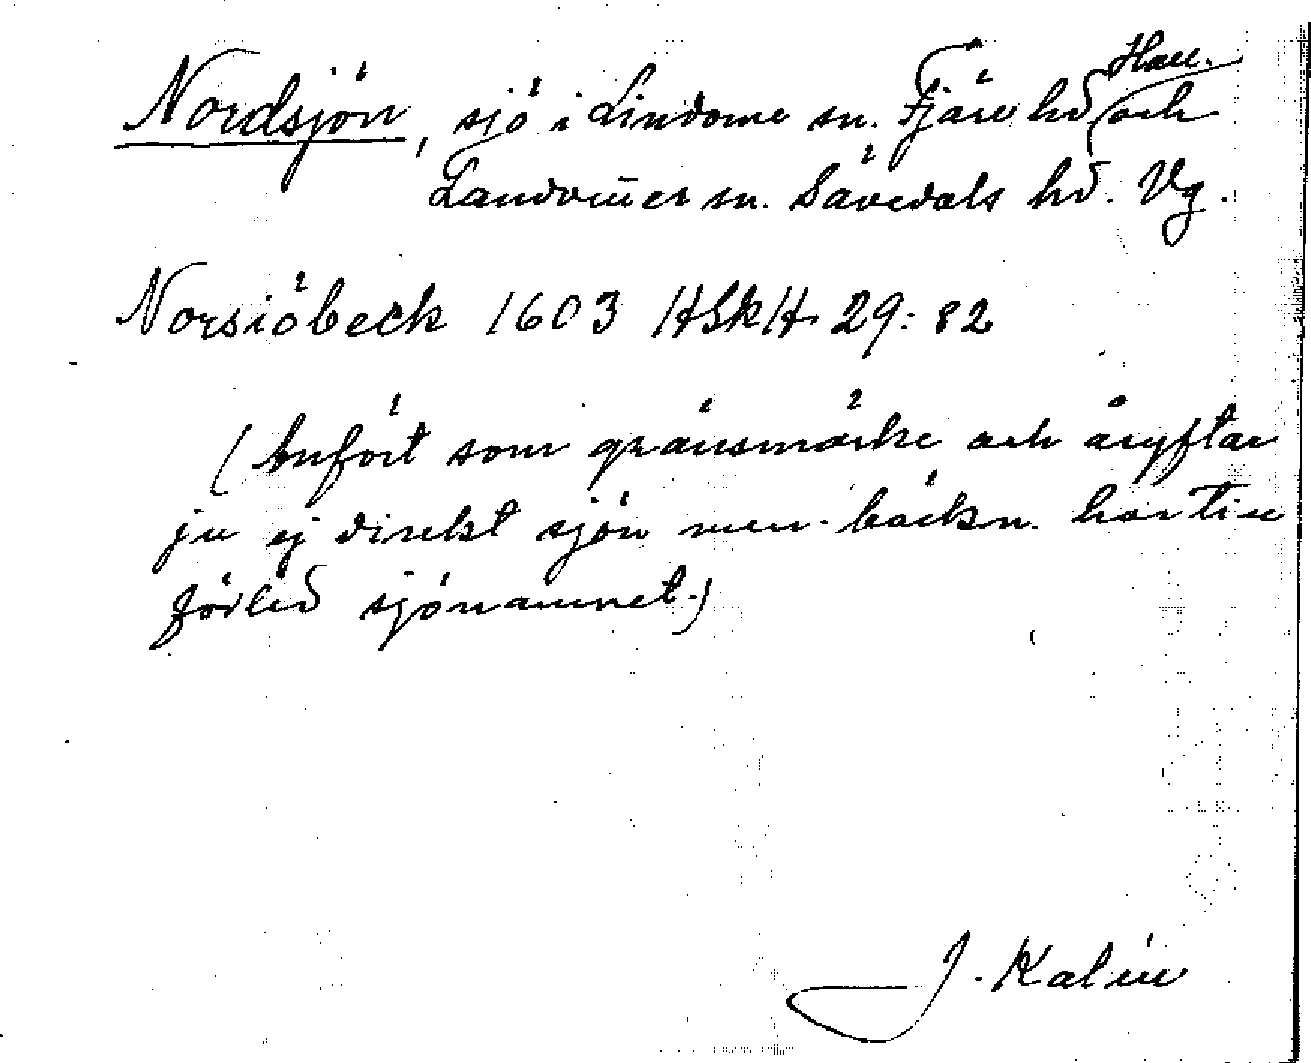 Nordsjön, sjö i Lindome sn. Fjäre hd Hall. och
Landvetter sn. Sävedals hd. Vg.
Norsiöbeck 1603 HSkH 29: 82
(Anfört som gränsmärke och åsyftar
ju ej direkt sjön men bäckn. har till
förled sjönamnet.)
J. Kalén